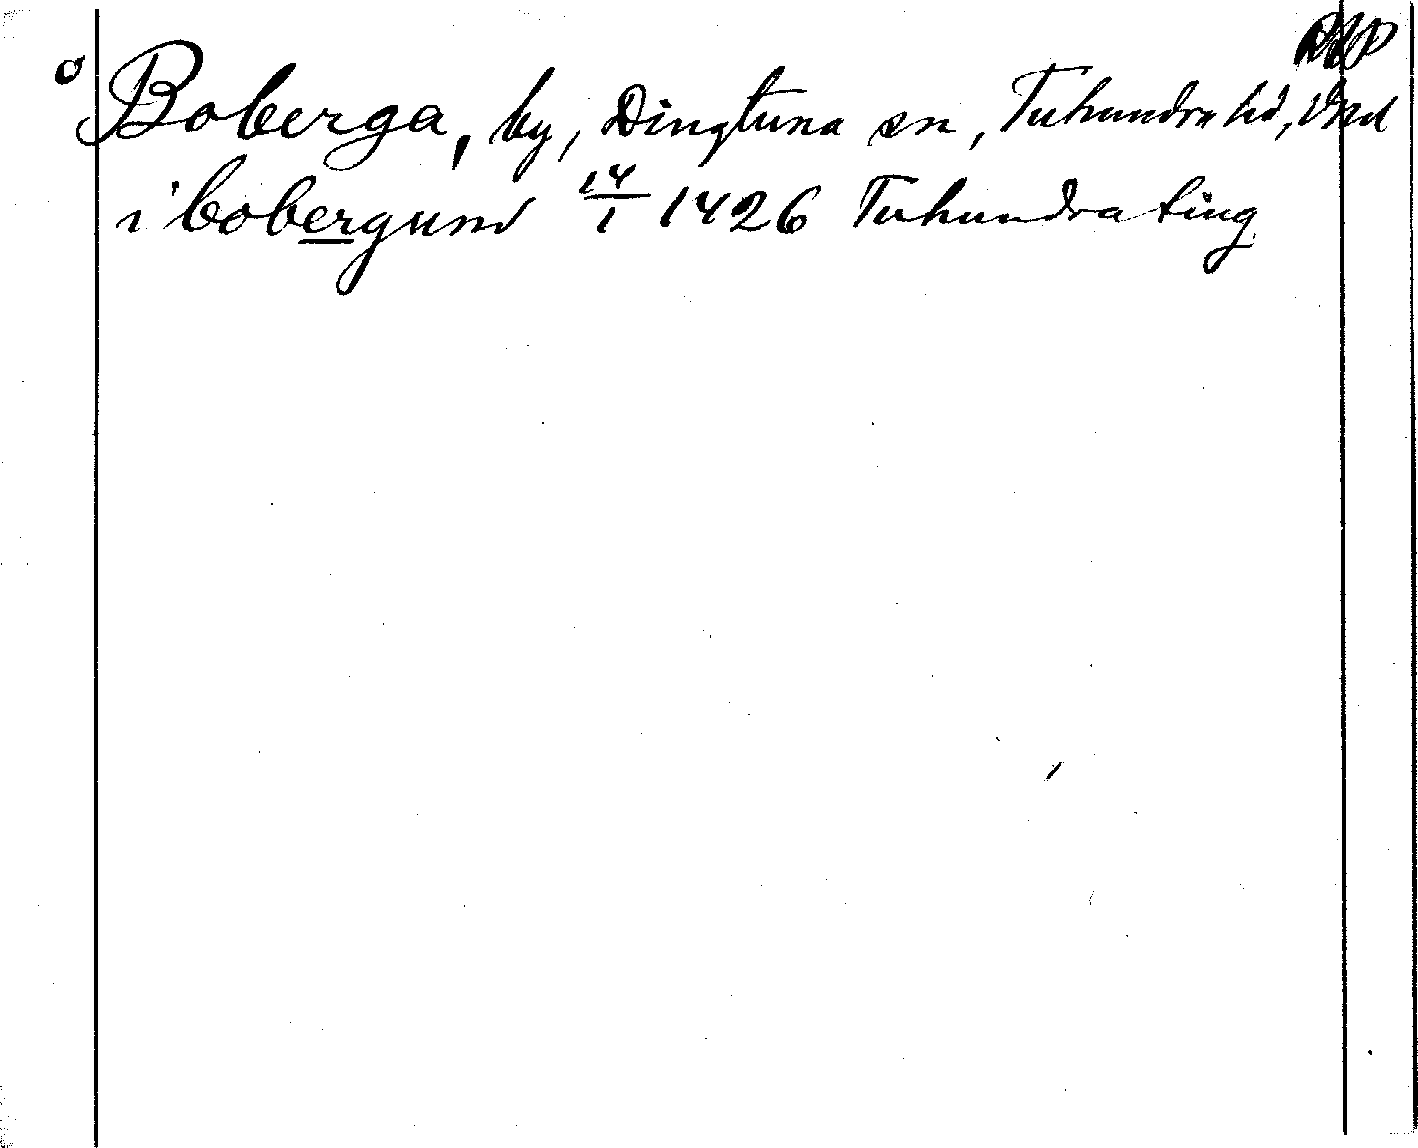 Boberga, by, Dingtuna sn, Tuhundra hd, Vml
i bobergum 14/1 1426 Tuhundra ting